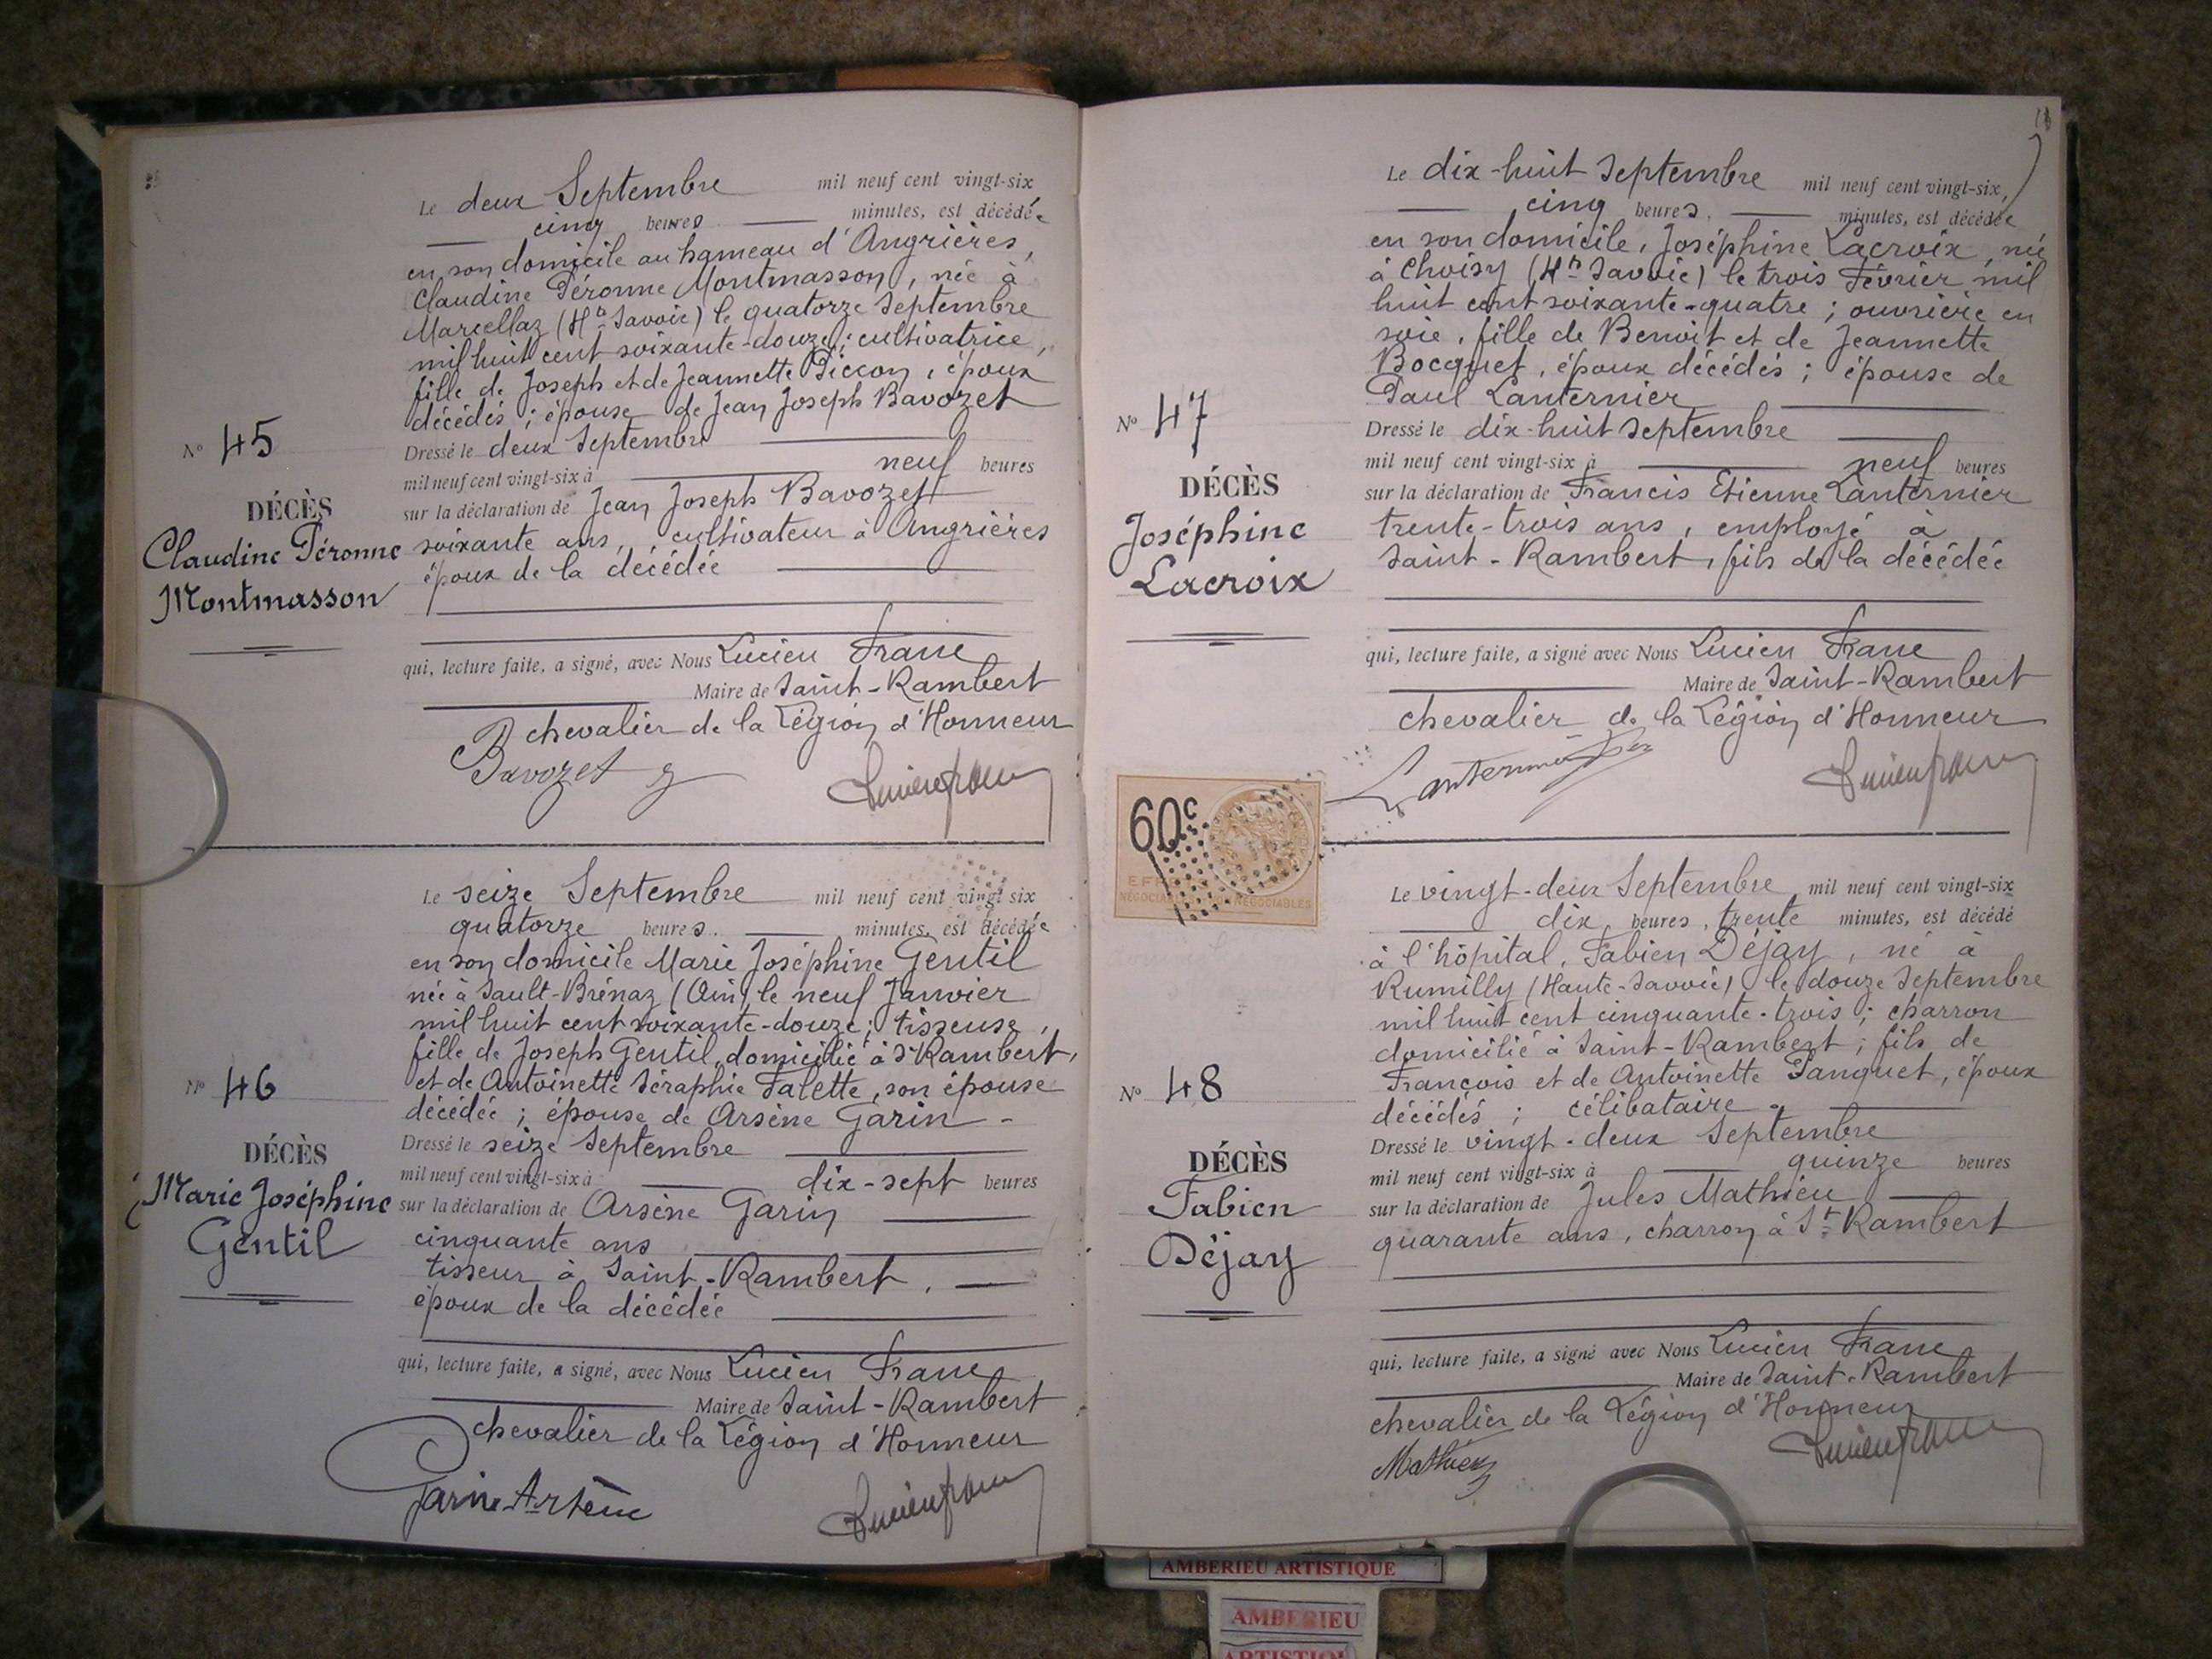 Le deux Septembre mil neuf cent vingt-six
cinq heures minutes, est décédée
en son domicile au hameau d'Angrières,
Claudine Péronne Montmasson, née à
Marcellaz (Hte Savoie) le quatorze Septembre
mil huit cent soixante-douze ; cultivatrice,
fille de Joseph et de Jeannette Piccon, époux
décédés ; épouse de Jean Joseph Bavozet
Dressé le deux Septembre
mil neuf cent vingt-six à neuf heures
sur la déclaration de Jean Joseph Bavozet
soixante ans, cultivateur à Angrières
époux de la décédée
qui, lecture faite, a signé, avec Nous Lucien Franc
Maire de Saint-Rambert
chevalier de la Légion d'Honneur
Bavozet
Lucien franc
No 45
DÉCÈS
Claudine Péronne
Montmasson
Le seize Septembre mil neuf cent vingt six
quatorze heures. minutes, est décédée
en son domicile Marie Joséphine Gentil
née à Sault-Brénaz (Ain) le neuf Janvier
mil huit cent soixante-douze ; tisseuse,
fille de Joseph Gentil, domicilié à St Rambert,
et de Antoinette Séraphie Falette, son épouse
décédée ; épouse de Arsène Garin -
Dressé le seize Septembre
mil neuf cent vingt-six à dix-sept heures
sur la déclaration de Arsène Garin
cinquante ans
tisseur à Saint-Rambert,
époux de la décédée
qui, lecture faite, a signé, avec Nous Lucien Franc
Maire de Saint-Rambert
chevalier de la Légion d'Honneur
Garin Arsène
Lucien franc
No 46
DÉCÈS
Marie Joséphine
Gentil
Le dix-huit Septembre mil neuf cent vingt-six,
cinq heures. minutes, est décédée
en son domicile, Joséphine Lacroix, née
à Choisy (Hte Savoie) le trois Février mil
huit cent soixante-quatre ; ouvrière en
soie, fille de Benoit et de Jeannette
Bocquet, époux décédés ; épouse de
Paul Lanternier
Dressé le dix-huit Septembre
mil neuf cent vingt-six à neuf heures
sur la déclaration de Francis Etienne Lanternier
trente-trois ans, employé à
Saint-Rambert, fils de la décédée
qui, lecture faite, a signé avec Nous Lucien Franc
Maire de Saint-Rambert
chevalier de la Légion d'Honneur
Lucien franc
No 47
DÉCÈS
Joséphine
Lacroix
60c
NÉGOCIABLES
Le vingt-deux Septembre mil neuf cent vingt-six
dix heures, trente minutes, est décédé
à l'hôpital, Fabien Déjay, né à
Rumilly (Haute-Savoie) le douze Septembre
mil huit cent cinquante-trois ; charron
domicilié à Saint-Rambert ; fils de
François et de Antoinette Panguet, époux
décédés ; célibataire.
Dressé le vingt-deux Septembre
mil neuf cent vingt-six à quinze heures
sur la déclaration de Jules Mathieu
quarante ans, charron à St Rambert
qui, lecture faite, a signé avec Nous Lucien Franc
Maire de Saint-Rambert
chevalier de la Légion d'Honneur
Mathieu
Lucien franc
No 48
DÉCÈS
Fabien
Déjay
AMBERIEU ARTISTIQUE
AMBERIEU
ARTISTIQUE